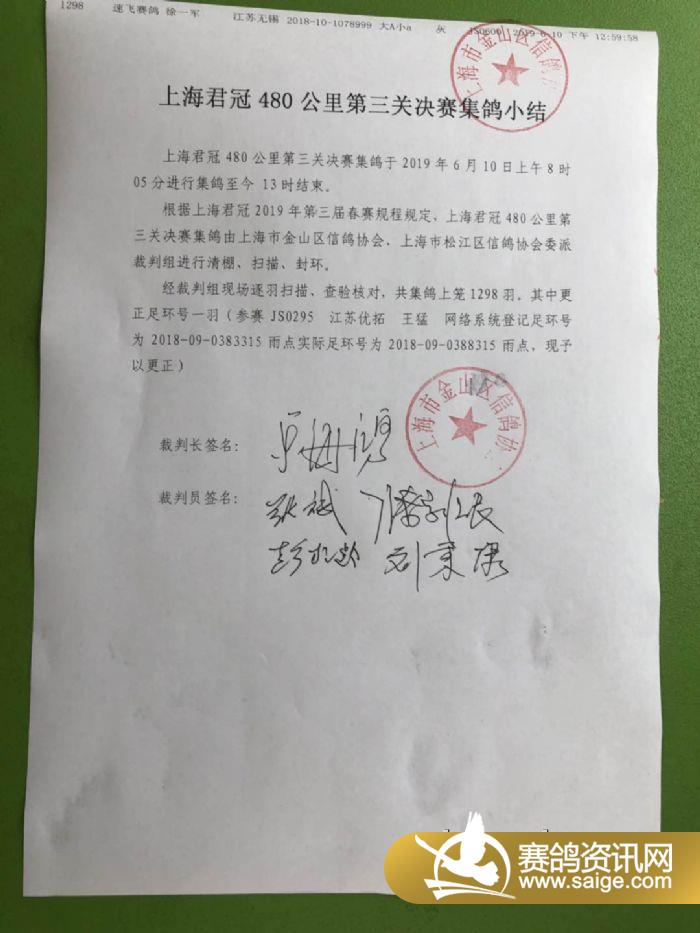 1298 速飞赛鸽 徐一军 江苏无锡 2018-10-1078999 大A小a 灰 2019-6-10 下午 12:59:58
上海市金山区信鸽协
上海君冠 480 公里第三关决赛集鸽小结
上海君冠 480 公里第三关决赛集鸽于 2019 年 6 月 10 日上午 8 时
05 分进行集鸽至今 13 时结束。
根据上海君冠 2019 年第三届春赛规程规定，上海君冠 480 公里第
三关决赛集鸽由上海市金山区信鸽协会、上海市松江区信鸽协会委派
裁判组进行清棚、扫描、封环。
经裁判组现场逐羽扫描、查验核对，共集鸽上笼 1298 羽。其中更
正足环号一羽（参赛 JS0295 江苏优拓 王猛 网络系统登记足环号
为 2018-09-0383315 雨点实际足环号为 2018-09-0388315 雨点，现予
以更正）
上海市金山区信鸽协
裁判长签名：
裁判员签名： 张斌
赛鸽资讯网
www.saige.com